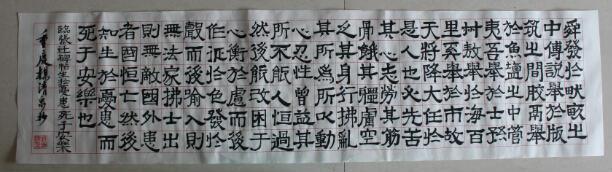 舜發於畎畝之
中傅說舉於版
築之間膠鬲舉
於魚鹽之中管
夷吾舉於士孫
叔敖舉於海百
里奚舉於市故
天將降大任於
是人也必先苦
其心志勞其筋
骨餓其體膚空
乏其身行拂亂
其所為所以動
心忍性曾益其
所不能人恒過
然後能改困于
心衡於慮而後
作征於色發於
聲而後喻入則
無法家拂士出
則無敵國外患
者國恒亡然後
知生於憂患而
死于安樂也
碑帖生於憂患死于安樂
重慶楊清